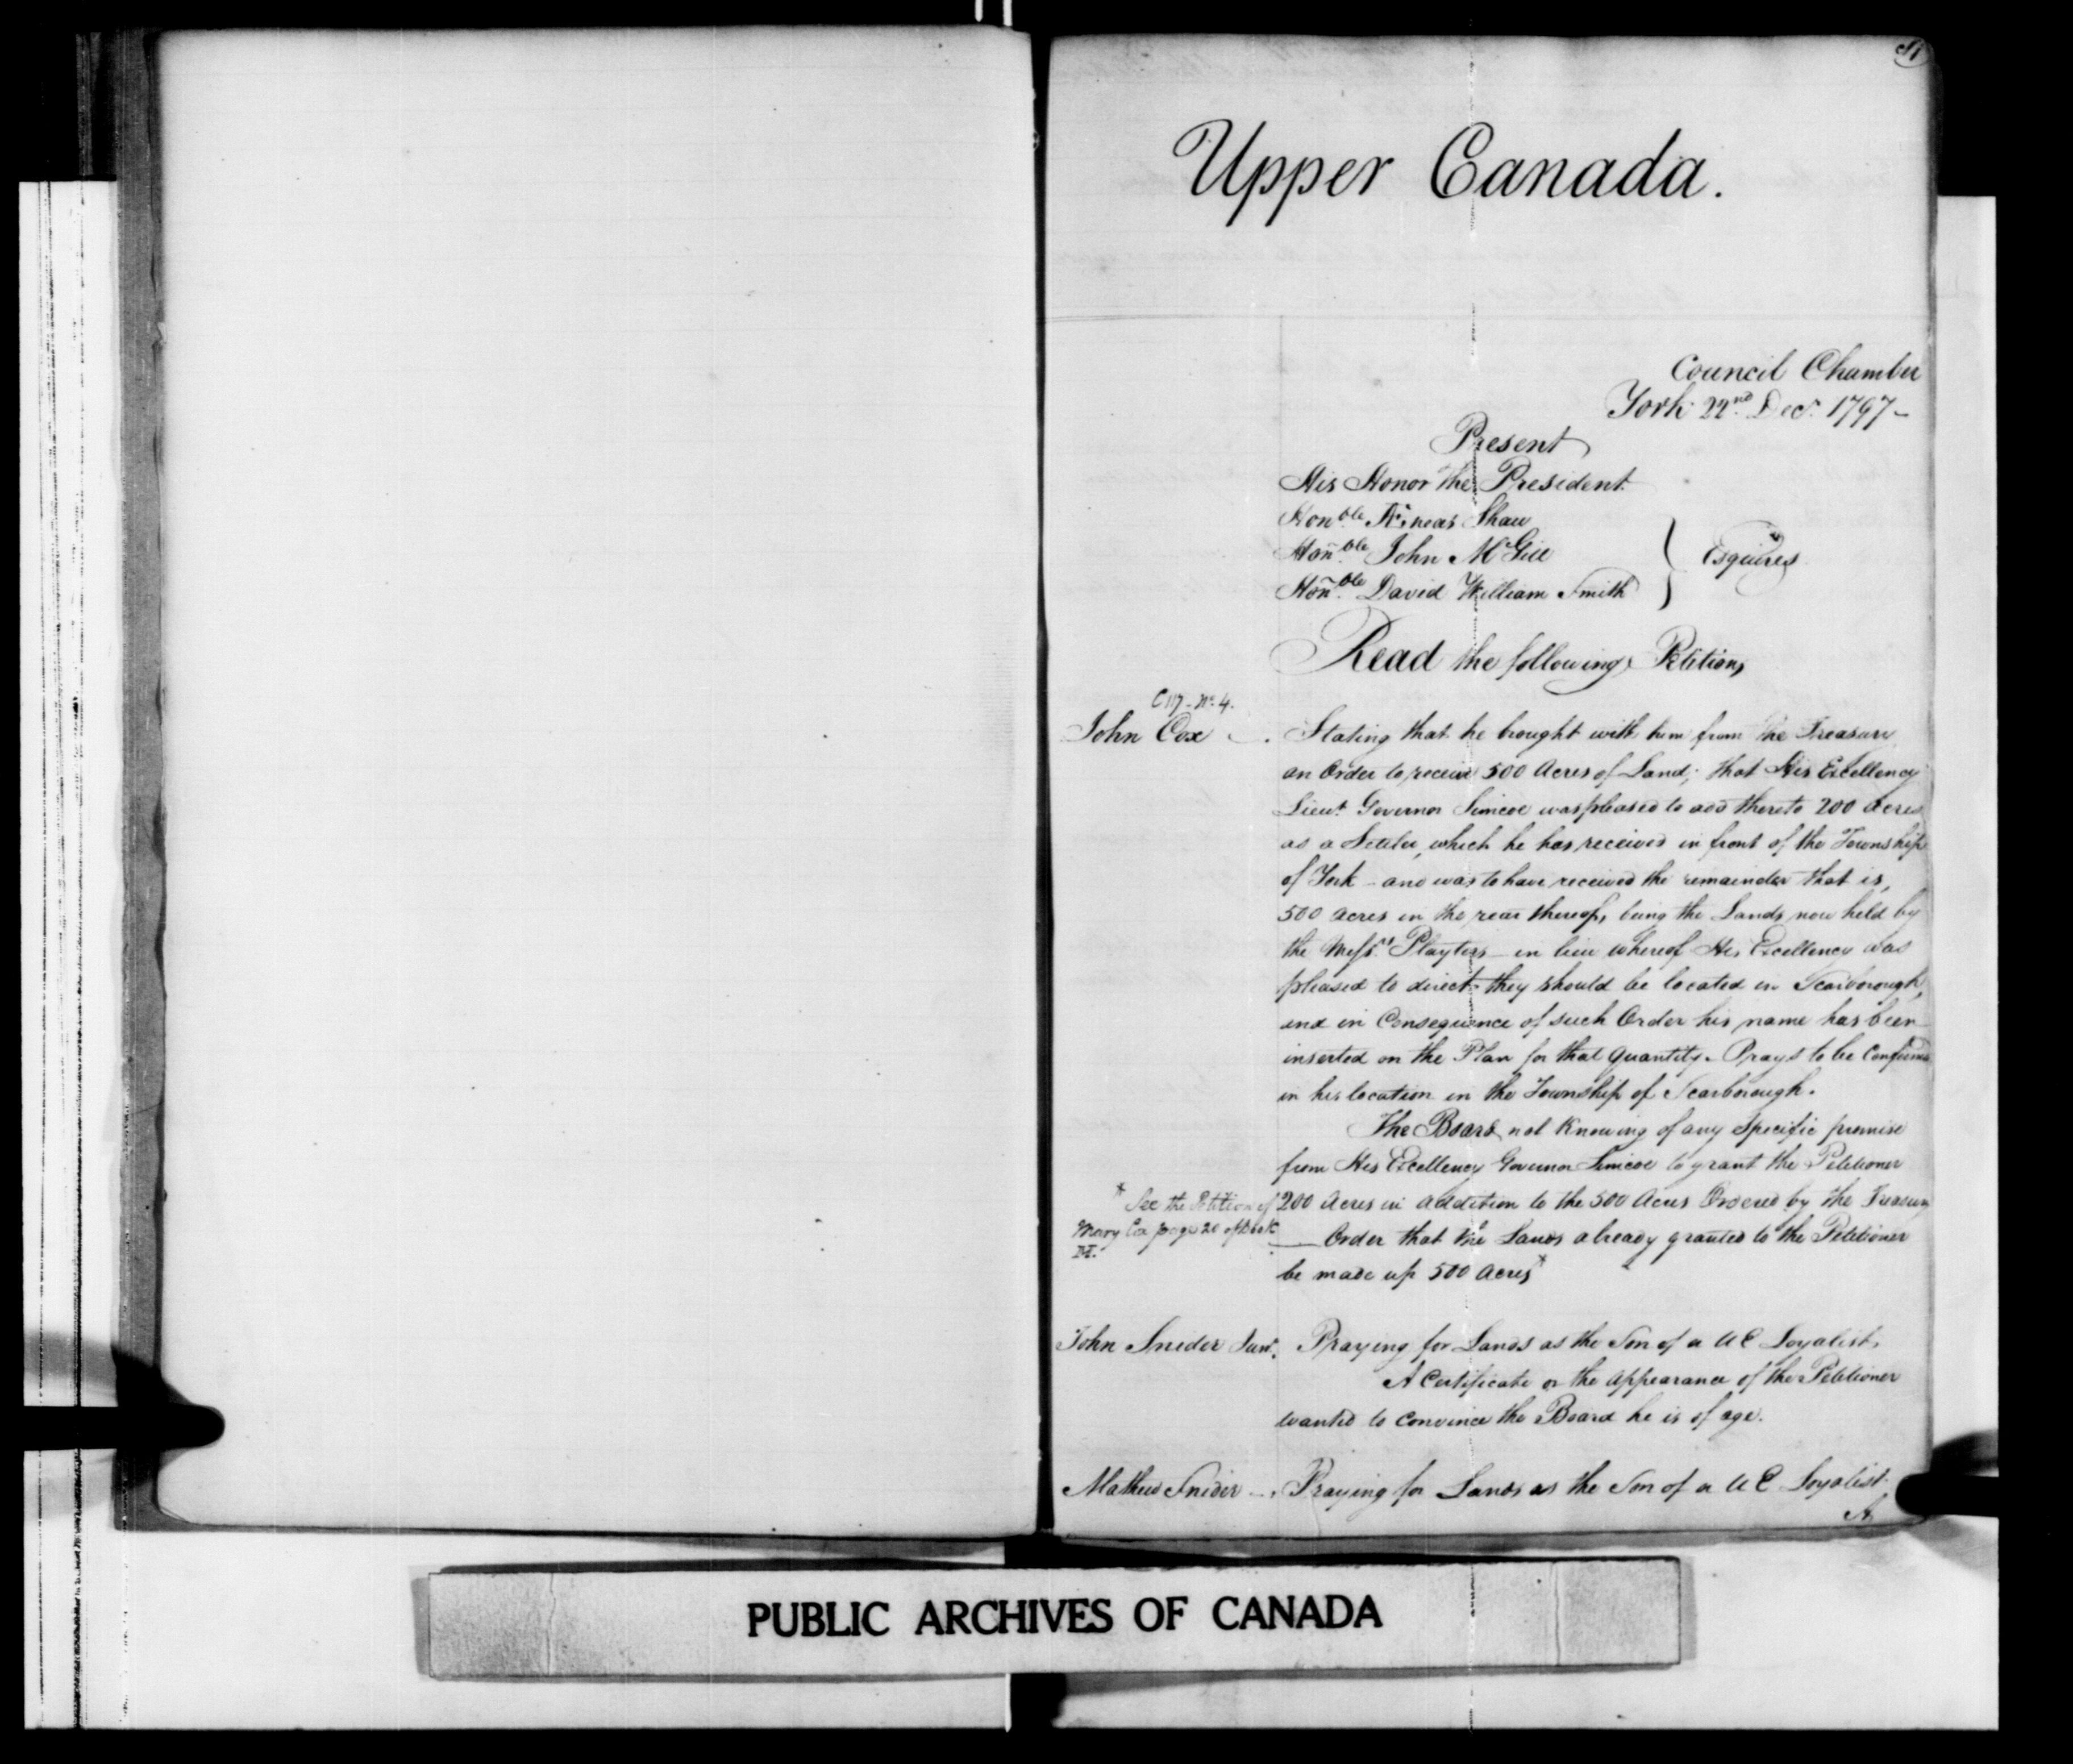 Upper Canada.
Council Chamber
York 22nd Decr. 1797 -
Present
His Honor the President
Honble Æneas Shaw
Honble John McGill
Honble David William Smith
} Esquires
Read the following Petitions
No. 4.
John Cox - . Stating that he brought with him from the Treasury
an Order to receive 500 Acres of Land; that His Excellency
Lieut. Governor Simcoe was pleased to add thereto 200 acres
as a Settler, which he has received in front of the Township
of York - and was to have received the remainder that is,
500 acres in the rear thereof, being the Lands now held by
the Messrs. Playters - in lieu whereof His Excellency was
pleased to direct they should be located in Scarborough,
and in Consequence of such Order his name has been
inserted on the Plan for that quantity. Prays to be Confirmed
in his location in the Township of Scarborough.
The Board not Knowing of any Specific promise
from His Excellency Governor Simcoe to grant the Petitioner
200 Acres in addition to the 500 Acres Ordered by the Treasury
* See the Petition of
Mary Cox page 20 of Book
M.
— Order that the Lands already granted to the Petitioner
be made up 500 Acres*
John Snider Junr. Praying for Lands as the Son of a U E Loyalist.
A Certificate or the appearance of the Petitioner
wanted to Convince the Board he is of age.
Mathew Snider - . Praying for Lands as the Son of a U E Loyalist.
A
PUBLIC ARCHIVES OF CANADA